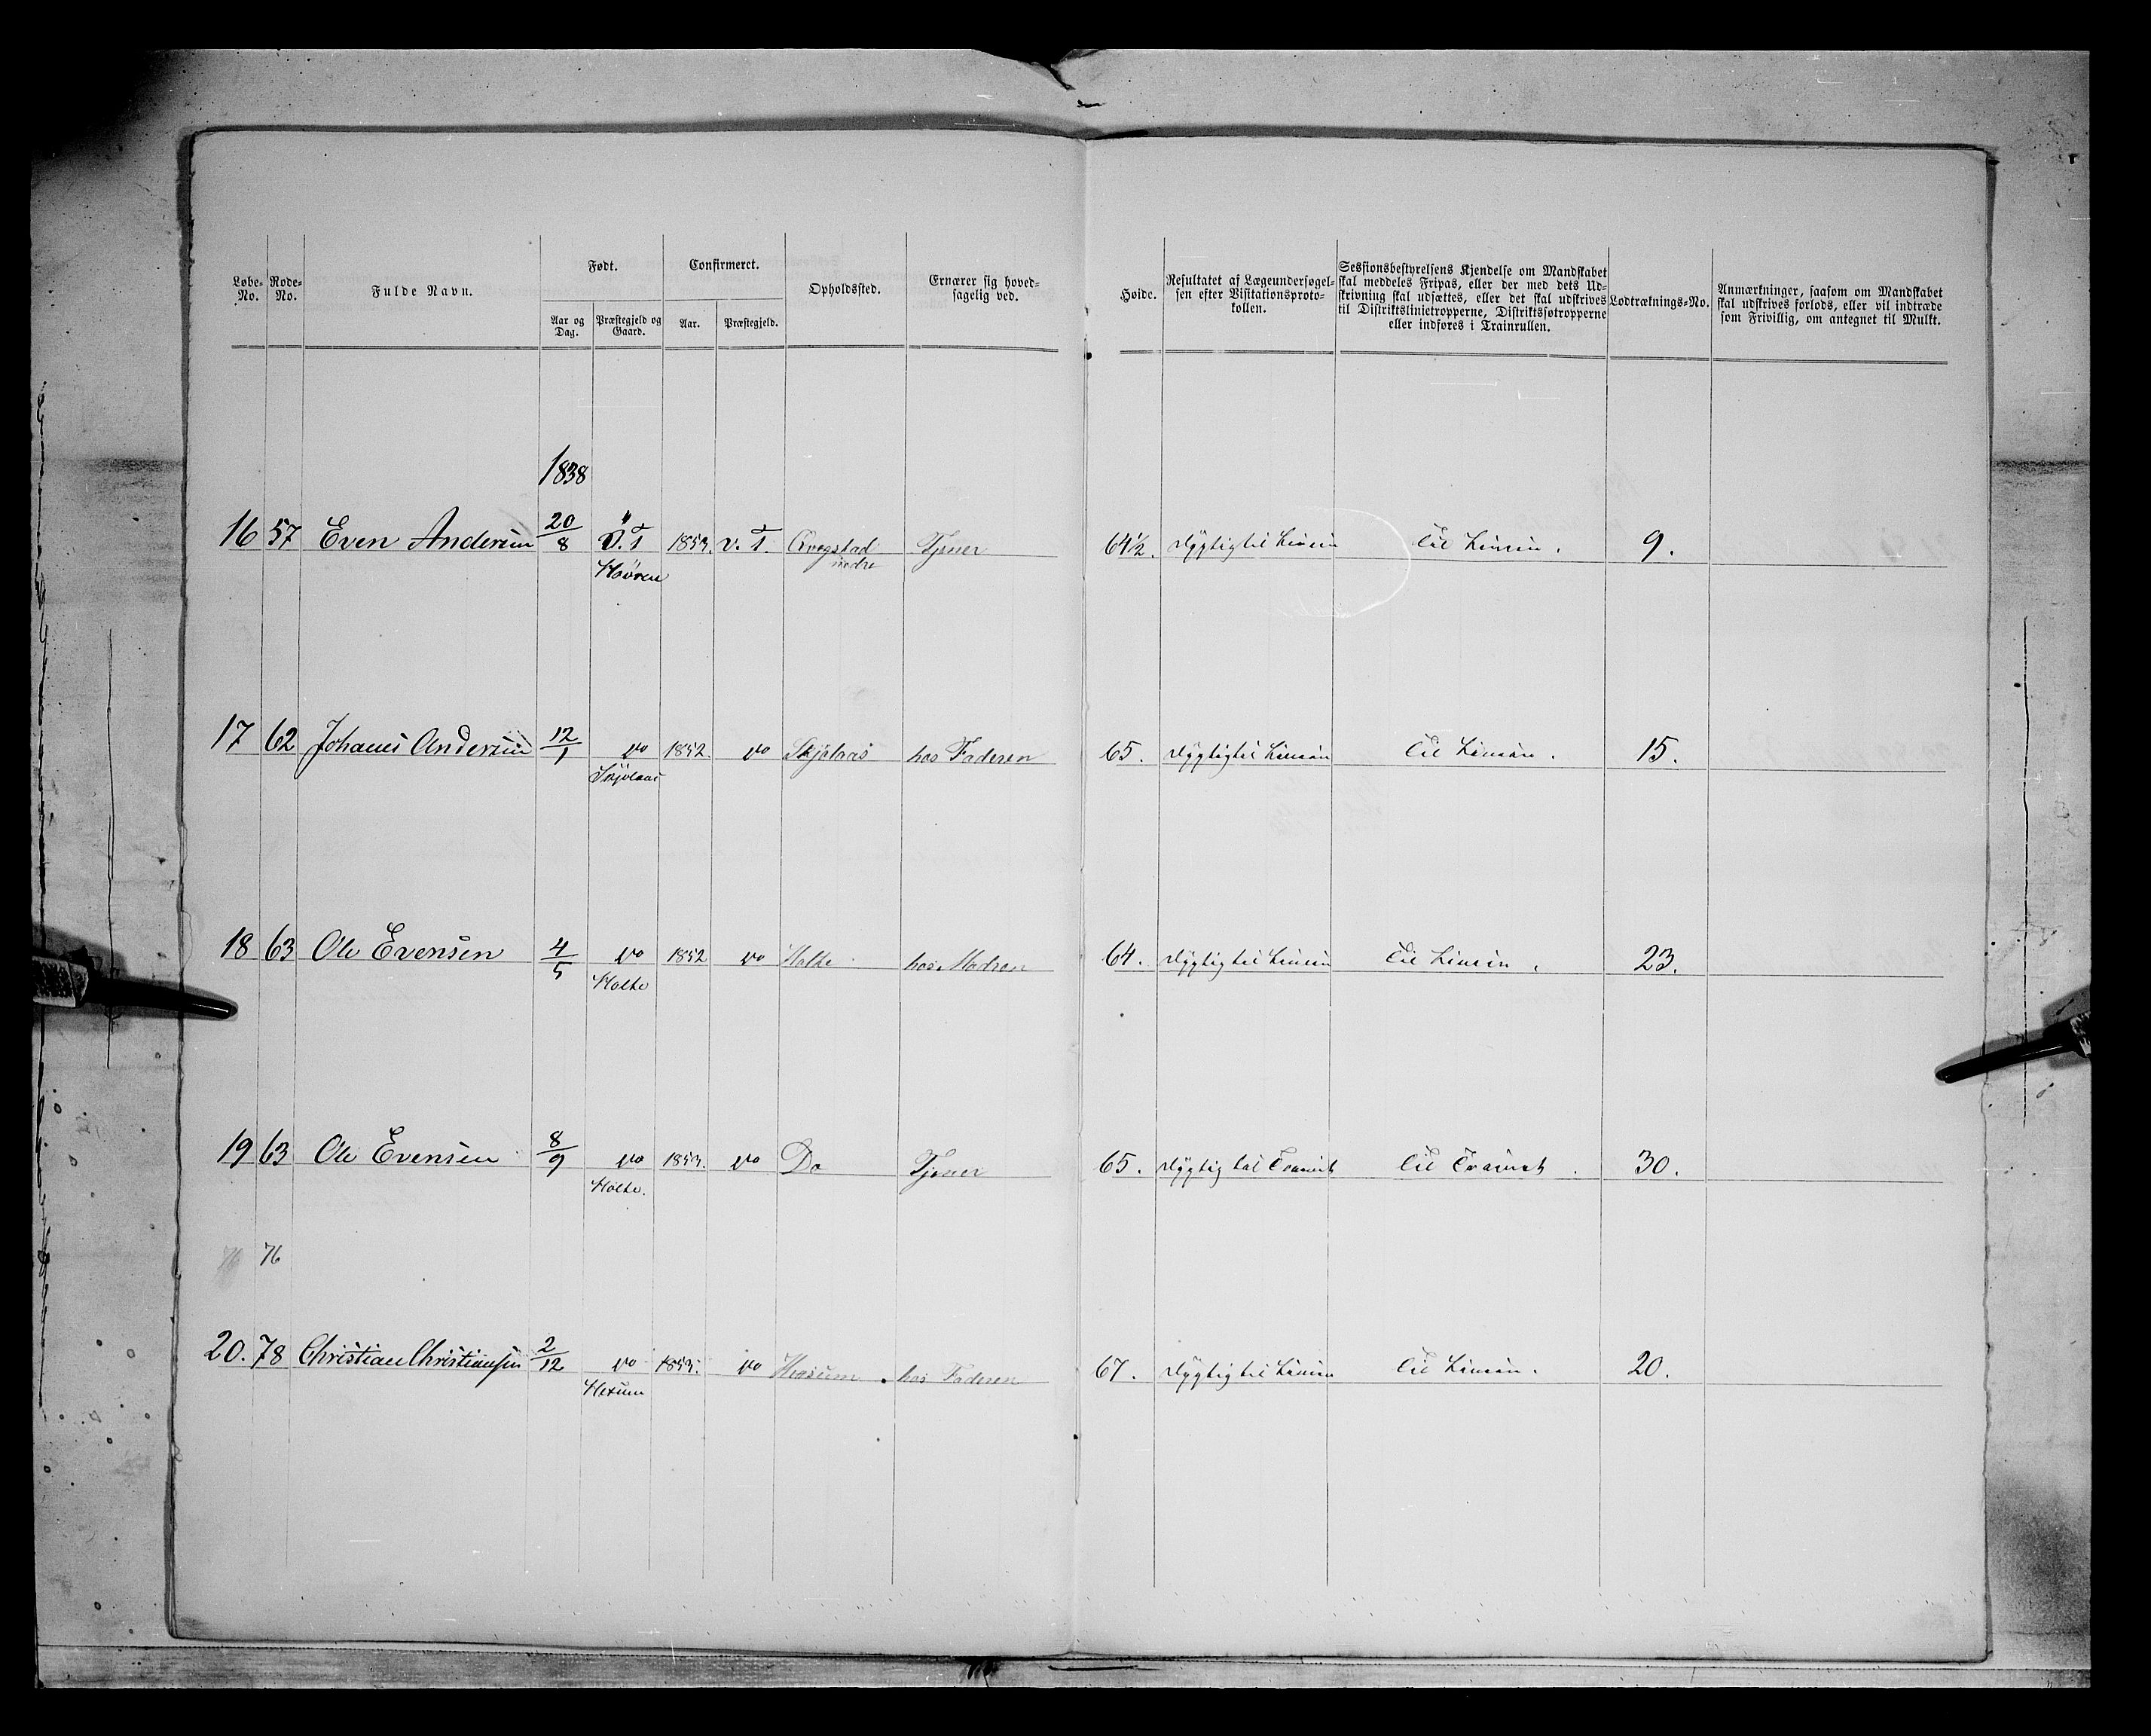 Løbe-No. Rode-No. Fulde Navn. Født. Confirmeret. Opholdssted. Ernærer sig hoved-sagelig ved. Høide. Resultatet af Lægeundersøgel-sen efter Visitationsproto-kollen. Sessionsbestyrelsens Kjendelse om Mandskabet skal meddeles Fripas, eller der med dets Ud-skrivning skal udsættes, eller det skal udskrives til Distriktslinietropperne, Distriktssøtropperne eller indføres i Trainrullen. Lodtræknings-No. Anmærkninger, saasom om Mandskabet skal udskrives forlods, eller vil indtræde som Frivillig, om antegnet til Mulkt.
Aar og Dag. Præstegjeld og Gaard. Aar. Præstegjeld.
1838
16 57 Even Andersen 20/8 V. T. 1853. V. T. Qvegstad Tjener 64½. Dygtig til Linien Til Linien. 9.
nedre
17 62 Johanes Andersen 12/1 Do 1852. Do Skjølaas hos Faderen 65. Dygtig til Linien Til Linien. 15.
Skjølaas
18 63 Ole Evensen 4/5 Do 1852 Do Holte hos Modren 64. Dygtig til Linien Til Linien. 23.
Holte
19 63 Ole Evensen 8/9 Do 1853. Do Do Tjener 65. Dygtig til Trainet Til Trainet. 30.
Holte.
76 76
20. 78 Christian Christiansen 2/12 Do 1853. Do hos Faderen 67. Dygtig til Linien Til Linien. 20.
Hexum